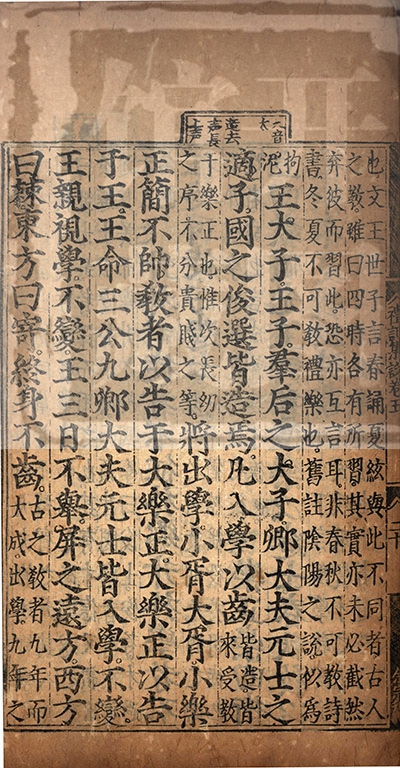 造去
声長
上声
也文王世子言春誦夏絃與此不同者古人
之教雖曰四時各有所習其實亦未必截然
棄彼而習此恐亦互言耳非春秋不可教詩
書冬夏不可教禮樂也舊註陰陽之說似為
拘泥王大子王子羣后之大子卿大夫元士之
適子國之俊選皆造焉凡入學以齒皆造皆來受教
于樂正也惟次長幼之序不分貴賤之等將出學小胥大胥小樂
正簡不帥教者以告于大樂正大樂正以告
于王王命三公九卿大夫元士皆入學不變
王親視學不變王三日不舉屏之遠方西方
曰棘東方曰寄終身不齒古之教者九年而大成出學九年之